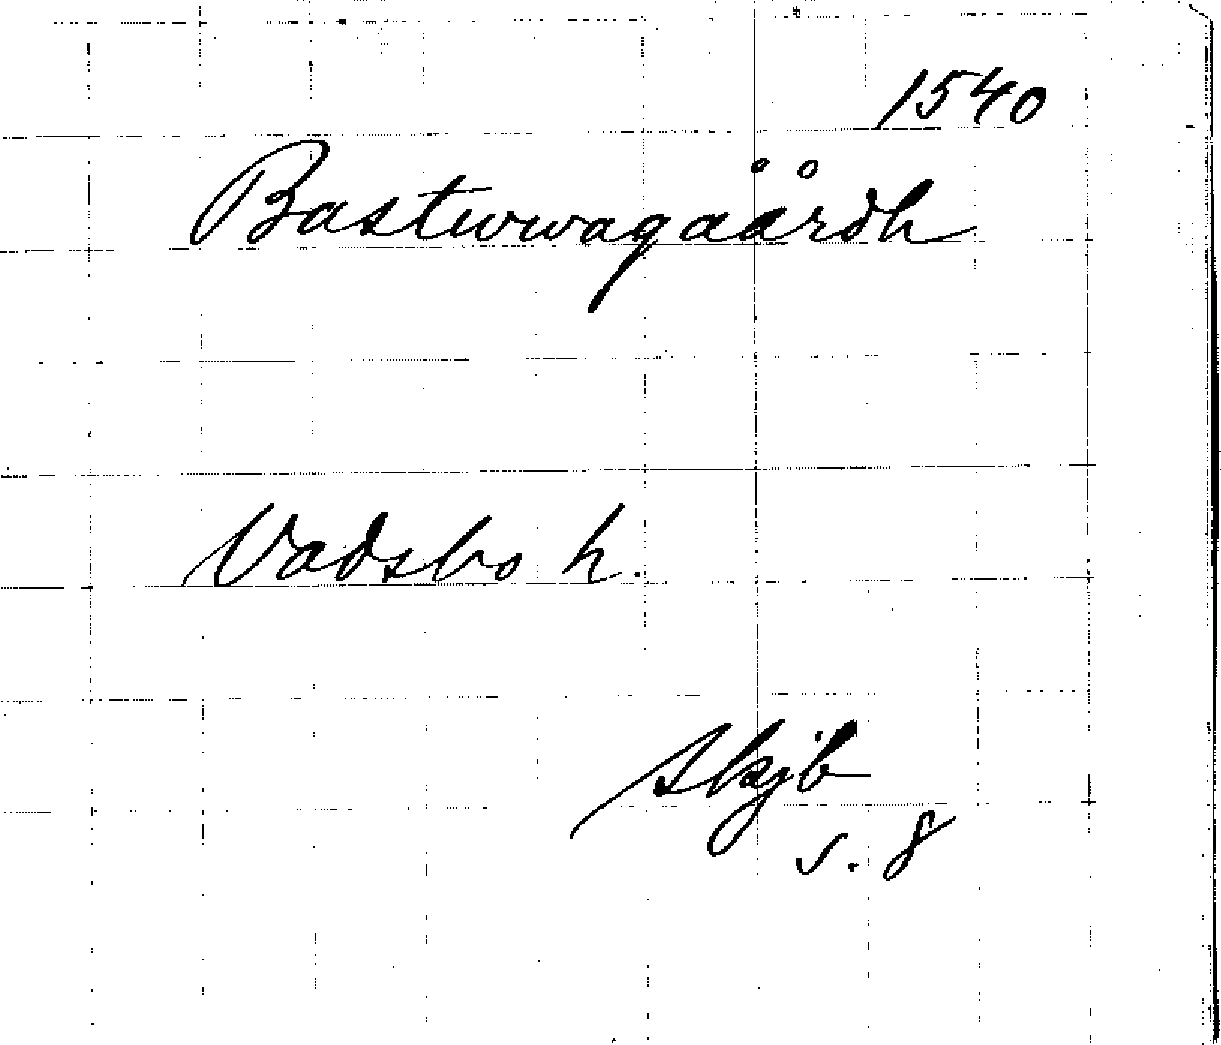 1540
Bastuwagåårdh
Vadsbo h.
Skjb
s. 8